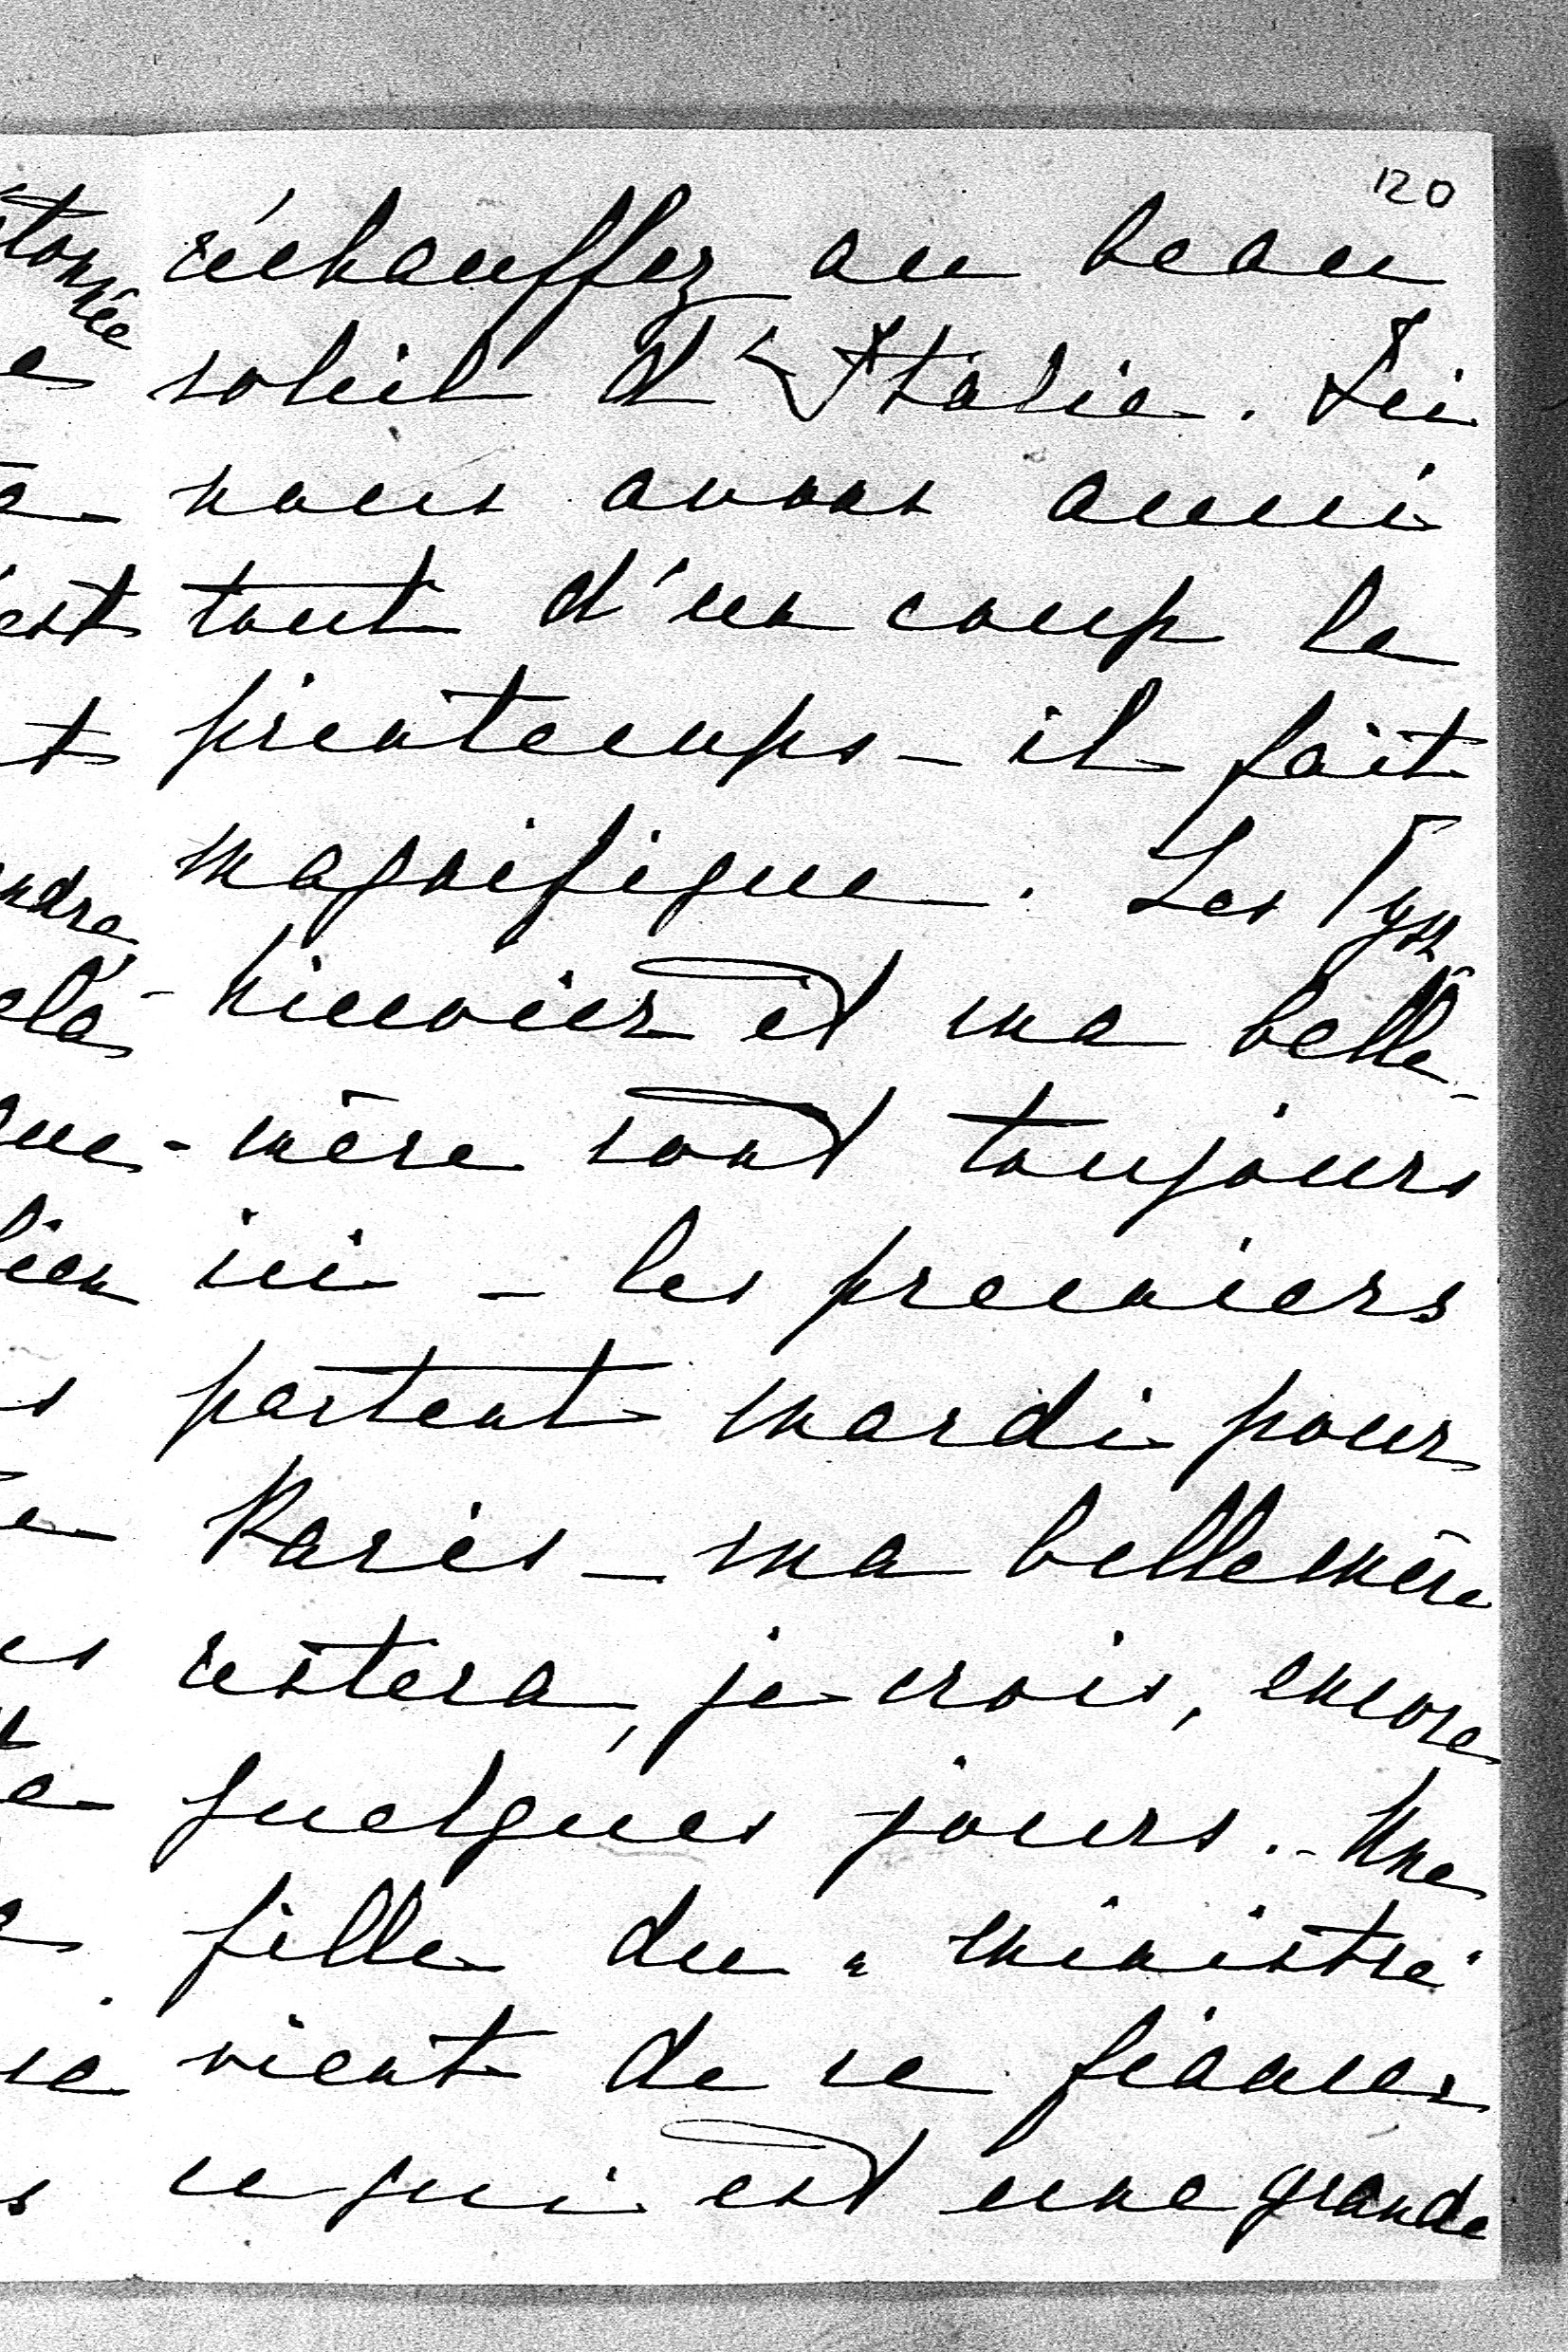 120
réchauffez au beau
soleil d'Italie. Ici
nous avons aussi
tout d'un coup le
printemps - il fait
magnifique. Les Tysz
-kiewicz et ma belle-
-mère sont toujours
ici - les premiers
partent mardi pour
Paris - ma bellemère
restera, je crois, encore
quelques jours. - Une
fille du "ministre"
vient de se fiancer
ce qui est une grande